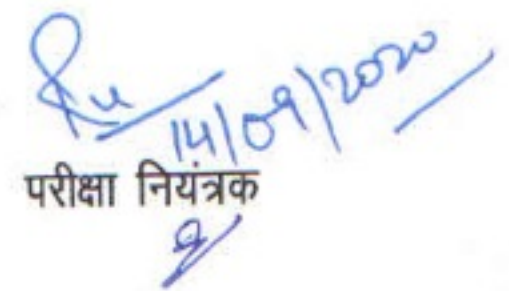 14/09/2020
परीक्षा नियंत्रक